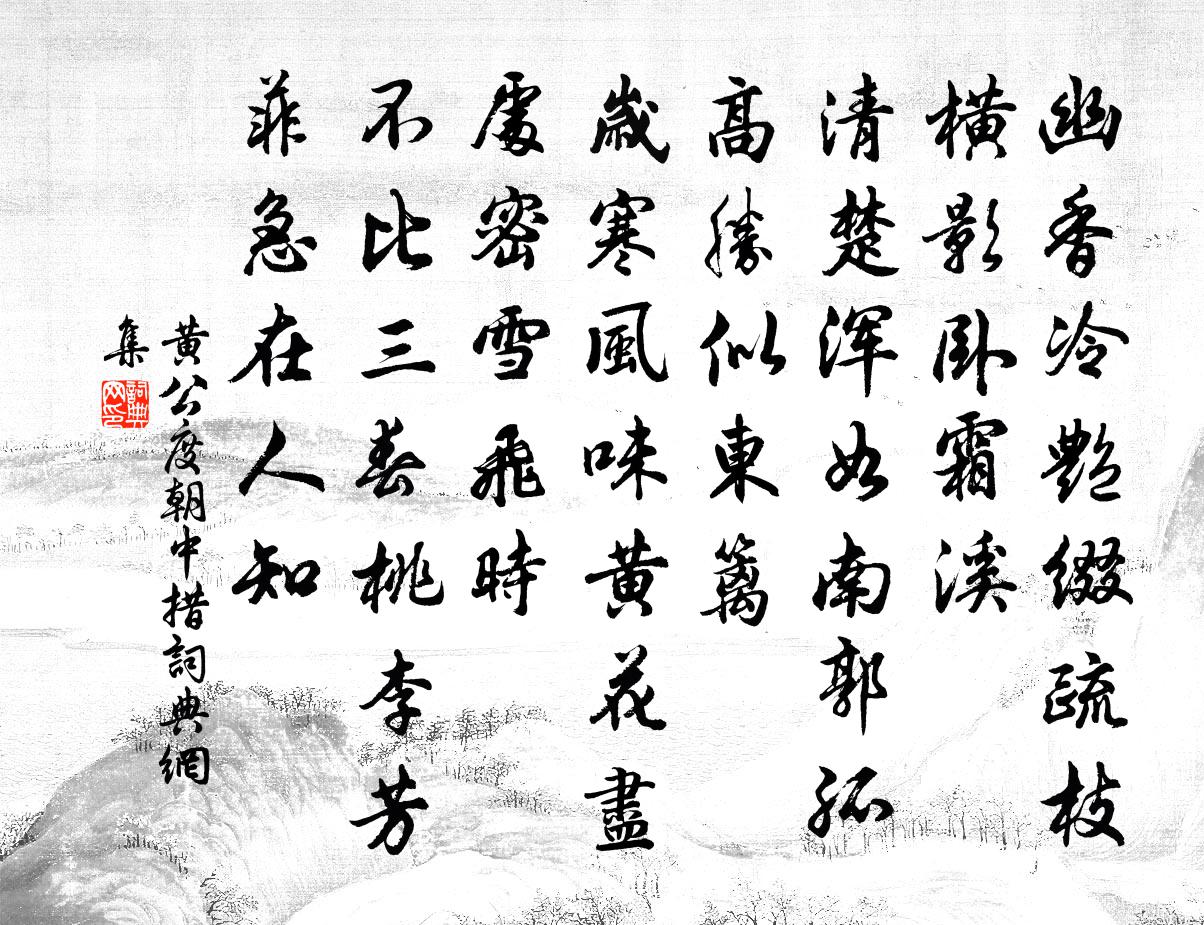 幽香冷艷綴疏枝
橫影臥霜溪
清楚渾如南郭孤
高勝似東籬
歲寒風味黃花盡
處密雪飛時
不比三春桃李芳
菲急在人知
黃公度朝中措詞典網
集
詞典
网印